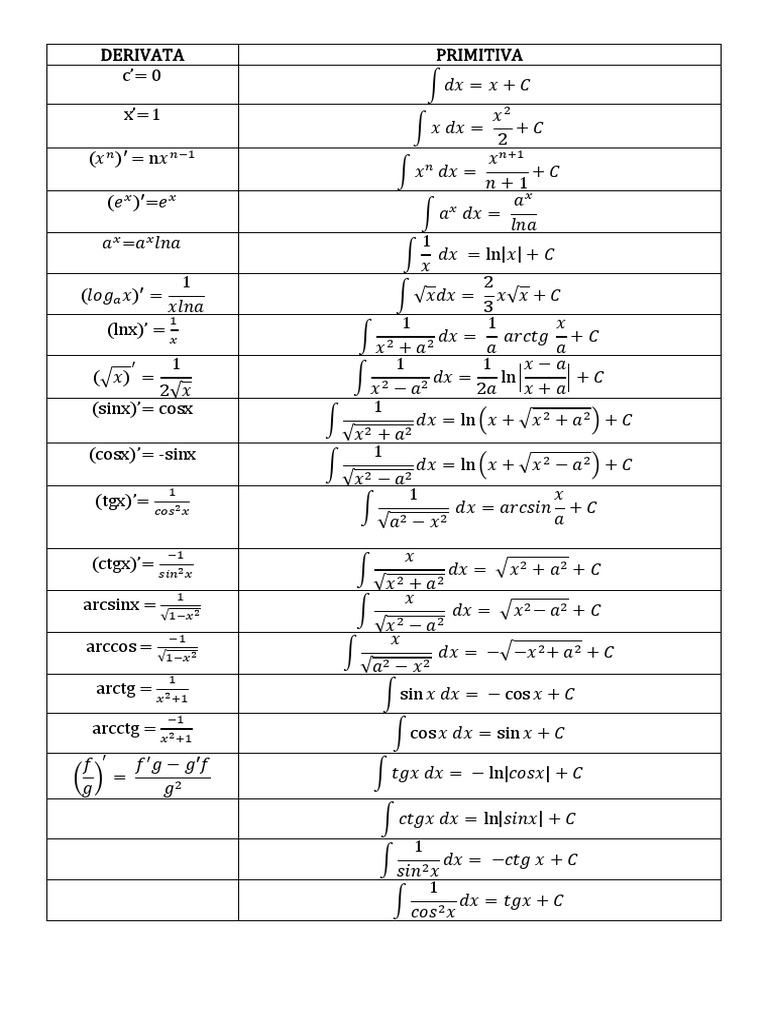 DERIVATA PRIMITIVA
c’= 0 ∫ dx = x + C
x’= 1 ∫ x dx = x²/2 + C
(xⁿ)’ = nxⁿ⁻¹ ∫ xⁿ dx = xⁿ⁺¹/(n + 1) + C
(eˣ)’=eˣ ∫ aˣ dx = aˣ/lna
aˣ=aˣlna ∫ 1/x dx = ln|x| + C
(logₐx)’ = 1/(xlna) ∫ √x dx = 2/3 x√x + C
(lnx)’ = 1/x ∫ 1/(x² + a²) dx = 1/a arctg x/a + C
(√x)′ = 1/(2√x) ∫ 1/(x² − a²) dx = 1/(2a) ln|(x − a)/(x + a)| + C
(sinx)’= cosx ∫ 1/√(x² + a²) dx = ln(x + √(x² + a²)) + C
(cosx)’= -sinx ∫ 1/√(x² − a²) dx = ln(x + √(x² − a²)) + C
(tgx)’= 1/cos²x ∫ 1/√(a² − x²) dx = arcsin x/a + C
(ctgx)’= −1/sin²x ∫ x/√(x² + a²) dx = √(x² + a²) + C
arcsinx = 1/√(1−x²) ∫ x/√(x² − a²) dx = √(x² − a²) + C
arccos = −1/√(1−x²) ∫ x/√(a² − x²) dx = −√(−x² + a²) + C
arctg = 1/(x²+1) ∫ sin x dx = − cos x + C
arcctg = −1/(x²+1) ∫ cos x dx = sin x + C
(f/g)′ = (f′g − g′f)/g² ∫ tgx dx = − ln|cosx| + C
∫ ctgx dx = ln|sinx| + C
∫ 1/sin²x dx = −ctg x + C
∫ 1/cos²x dx = tgx + C